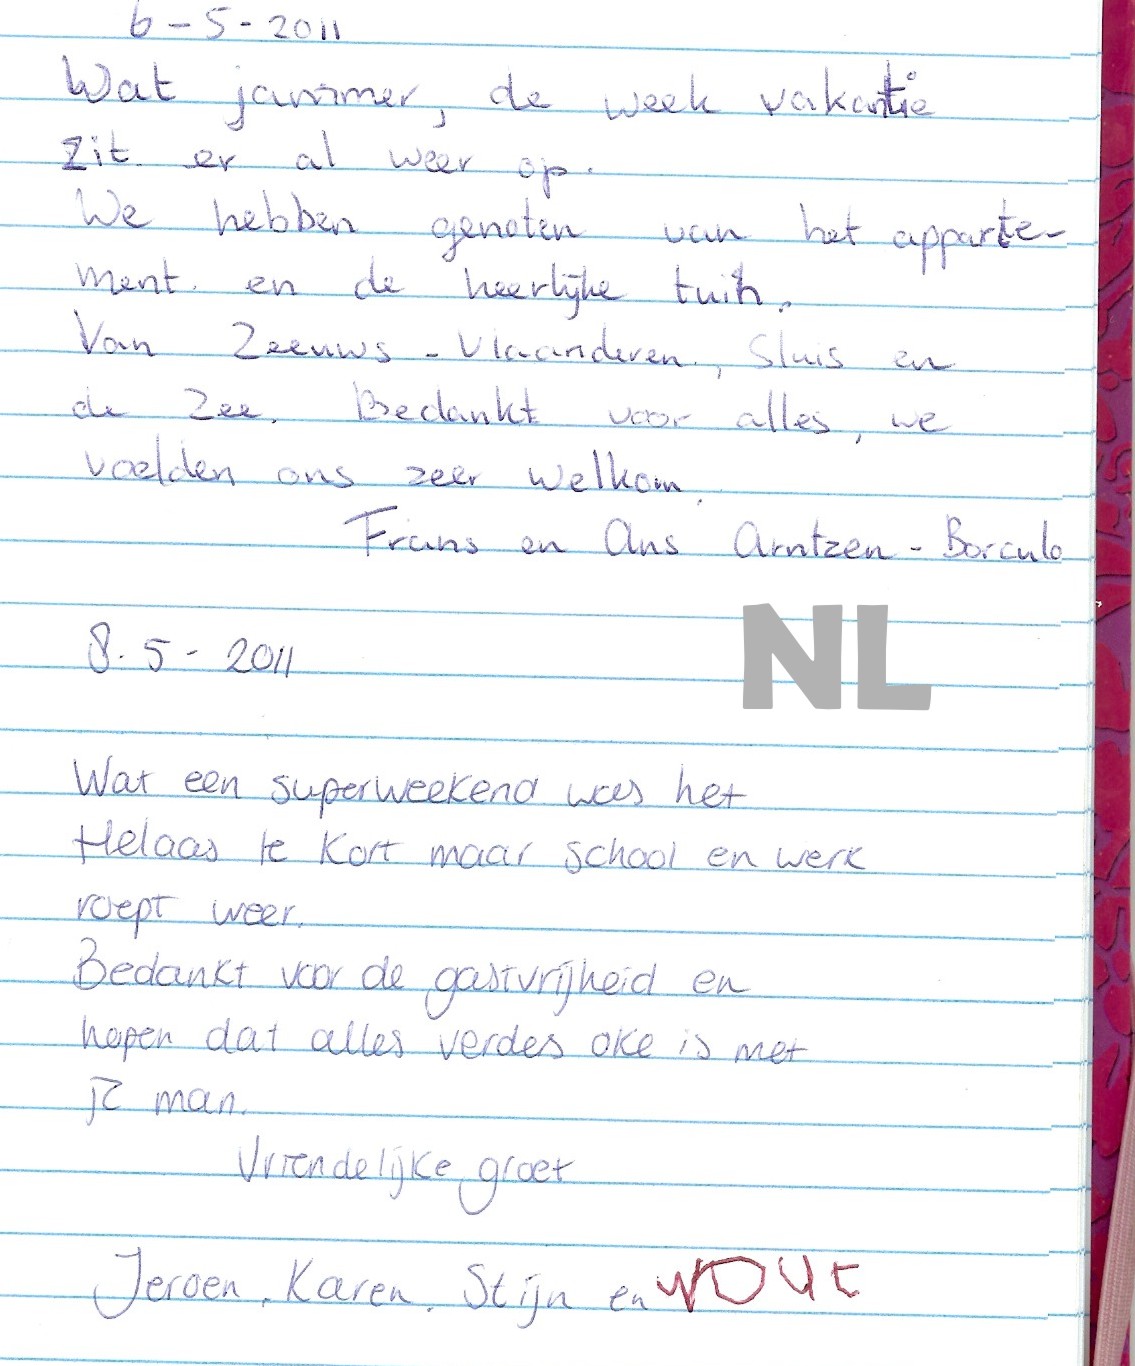 6-5-2011
Wat jammer, de week vakantie
zit er al weer op.
We hebben genoten van het apparte-
ment en de heerlijke tuin.
Van Zeeuws-Vlaanderen, Sluis en
de Zee. Bedankt voor alles, we
voelden ons zeer welkom.
Frans en Ans Arntzen - Borculo
NL
8.5-2011
Wat een superweekend was het
Helaas te kort maar school en werk
roept weer.
Bedankt voor de gastvrijheid en
hopen dat alles verdes oke is met
je man.
Vriendelijke groet
Jeroen, Karen, Stijn en WOUT